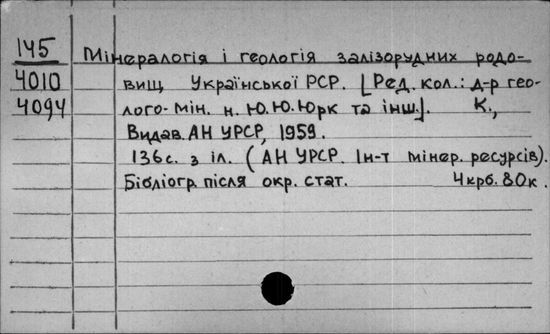 145 Мінералогія і геологія залізорудних родо-
4010 вищ Української РСР. [Ред. кол.: д-р гео-
4094 лого-мін. н. Ю.Ю.Юрк та інш.]. К.,
Видав. АН УРСР, 1959.
136с. з іл. (АН УРСР. Ін-т мінер. ресурсів).
Бібліогр. після окр. стат. 4крб. 80к.